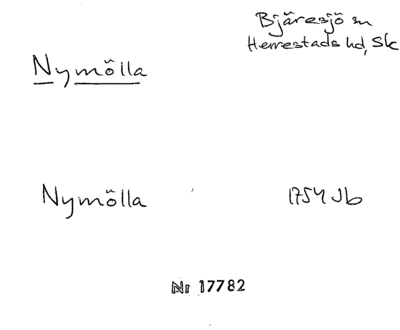 Bjäresjö sn
Herrestads hd, Sk
Nymölla
Nymölla 1754 Jb
Nr 17782